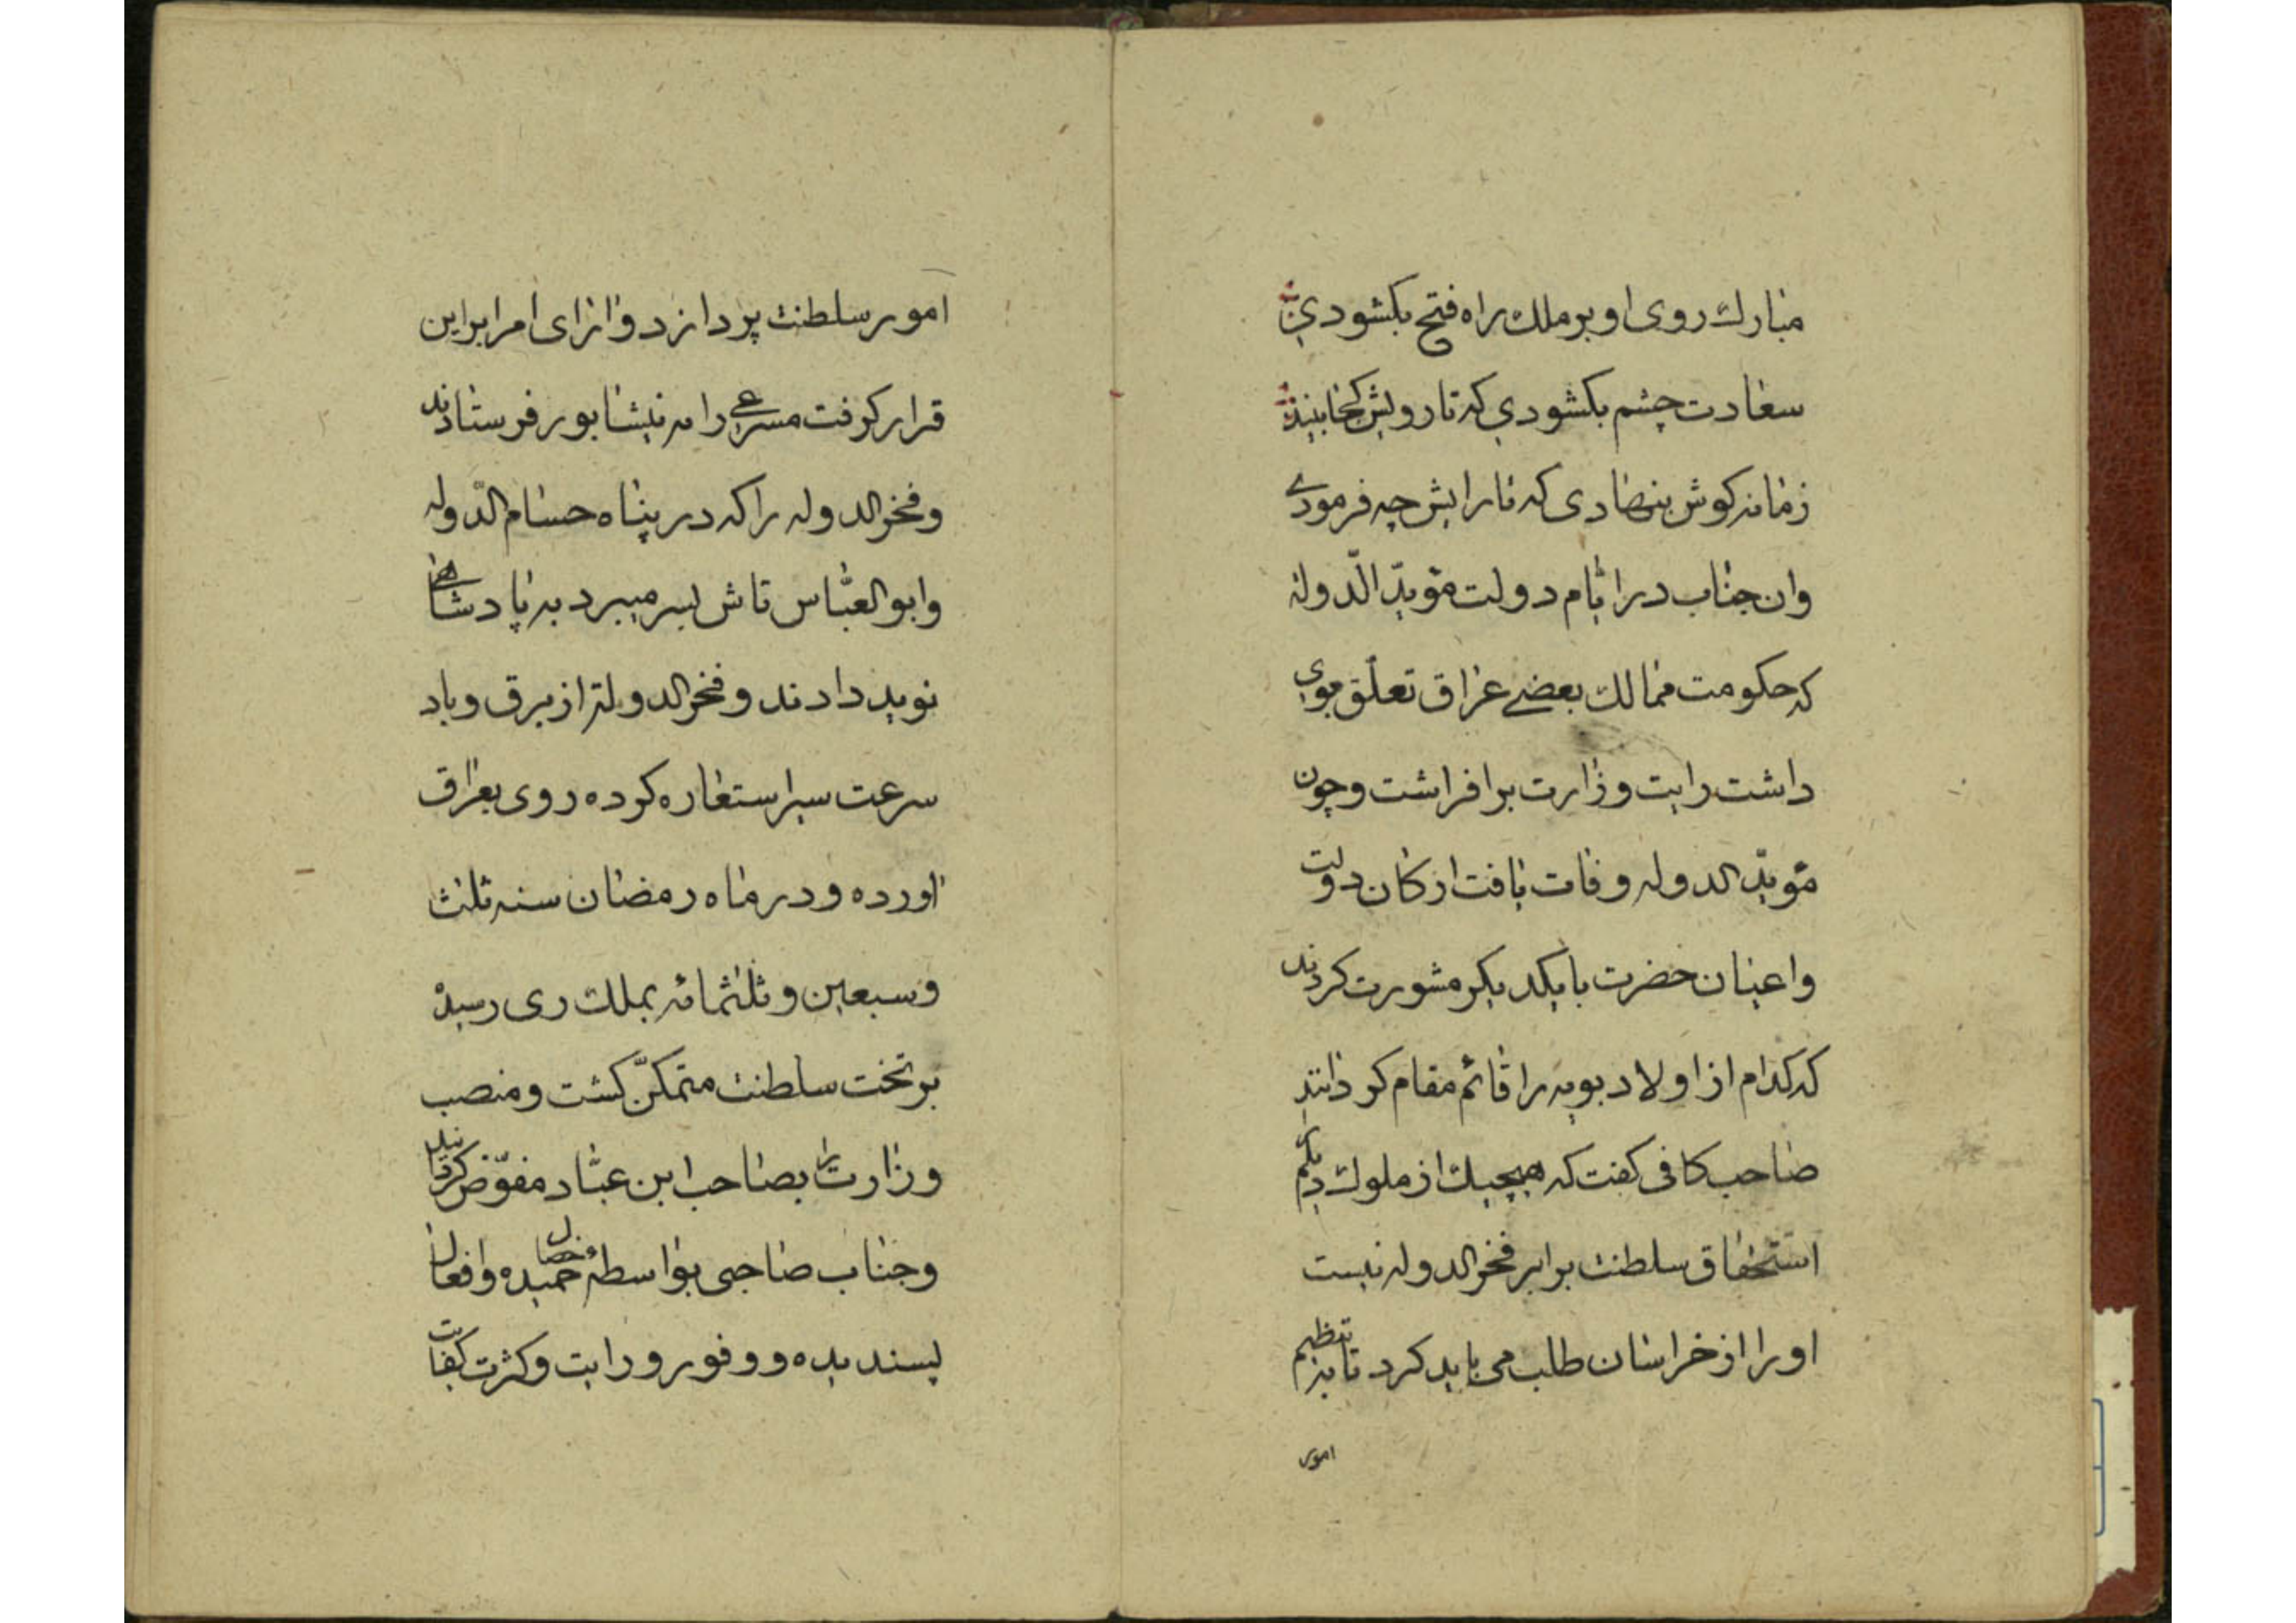 مبارك روی او بر ملك راه فتح بكشودی
سعادت چشم بكشودی كه تا رویش كجا بیند
زمانه كوش بنهادی كه تا رایش چه فرمودی
وان جناب در ایام دولت مؤیّد الدّوله
كه حكومت ممالك بعضی عراق تعلّق بوی
داشت رایت وزارت برافراشت و چون
مؤیّد الدوله وفات یافت اركان دولت
واعیان حضرت با یكدیكر مشورت كردند
كه كدام از اولاد بویه را قائم مقام كردانند
صاحب كافی كفت كه هیچیك از ملوك دیلم
استحقاق سلطنت برابر فخر الدوله نیست
او را از خراسان طلب می باید كرد تا بتنظیم
امور
امور سلطنت پردازد و ارای امرا براین
قرار كرفت مسرعی را به نیشابور فرستادند
و فخر الدوله را كه در پناه حسام الدّوله
و ابو العبّاس تاش بسر میبرد به پادشاهی
نوید دادند و فخر الدولة از برق و باد
سرعت سیر استعاره كرده روی بعراق
اورده و در ماه رمضان سنه ثلث
و سبعین و ثلثمائه بملك ری رسیده
بر تخت سلطنت متمكّن كشت و منصب
وزارت را بصاحب ابن عبّاد مفوّض كردانید
و جناب صاحبی بواسطهٔ خصال حمیده و افعال
پسندیده و وفور درایت و كثرت كفایت